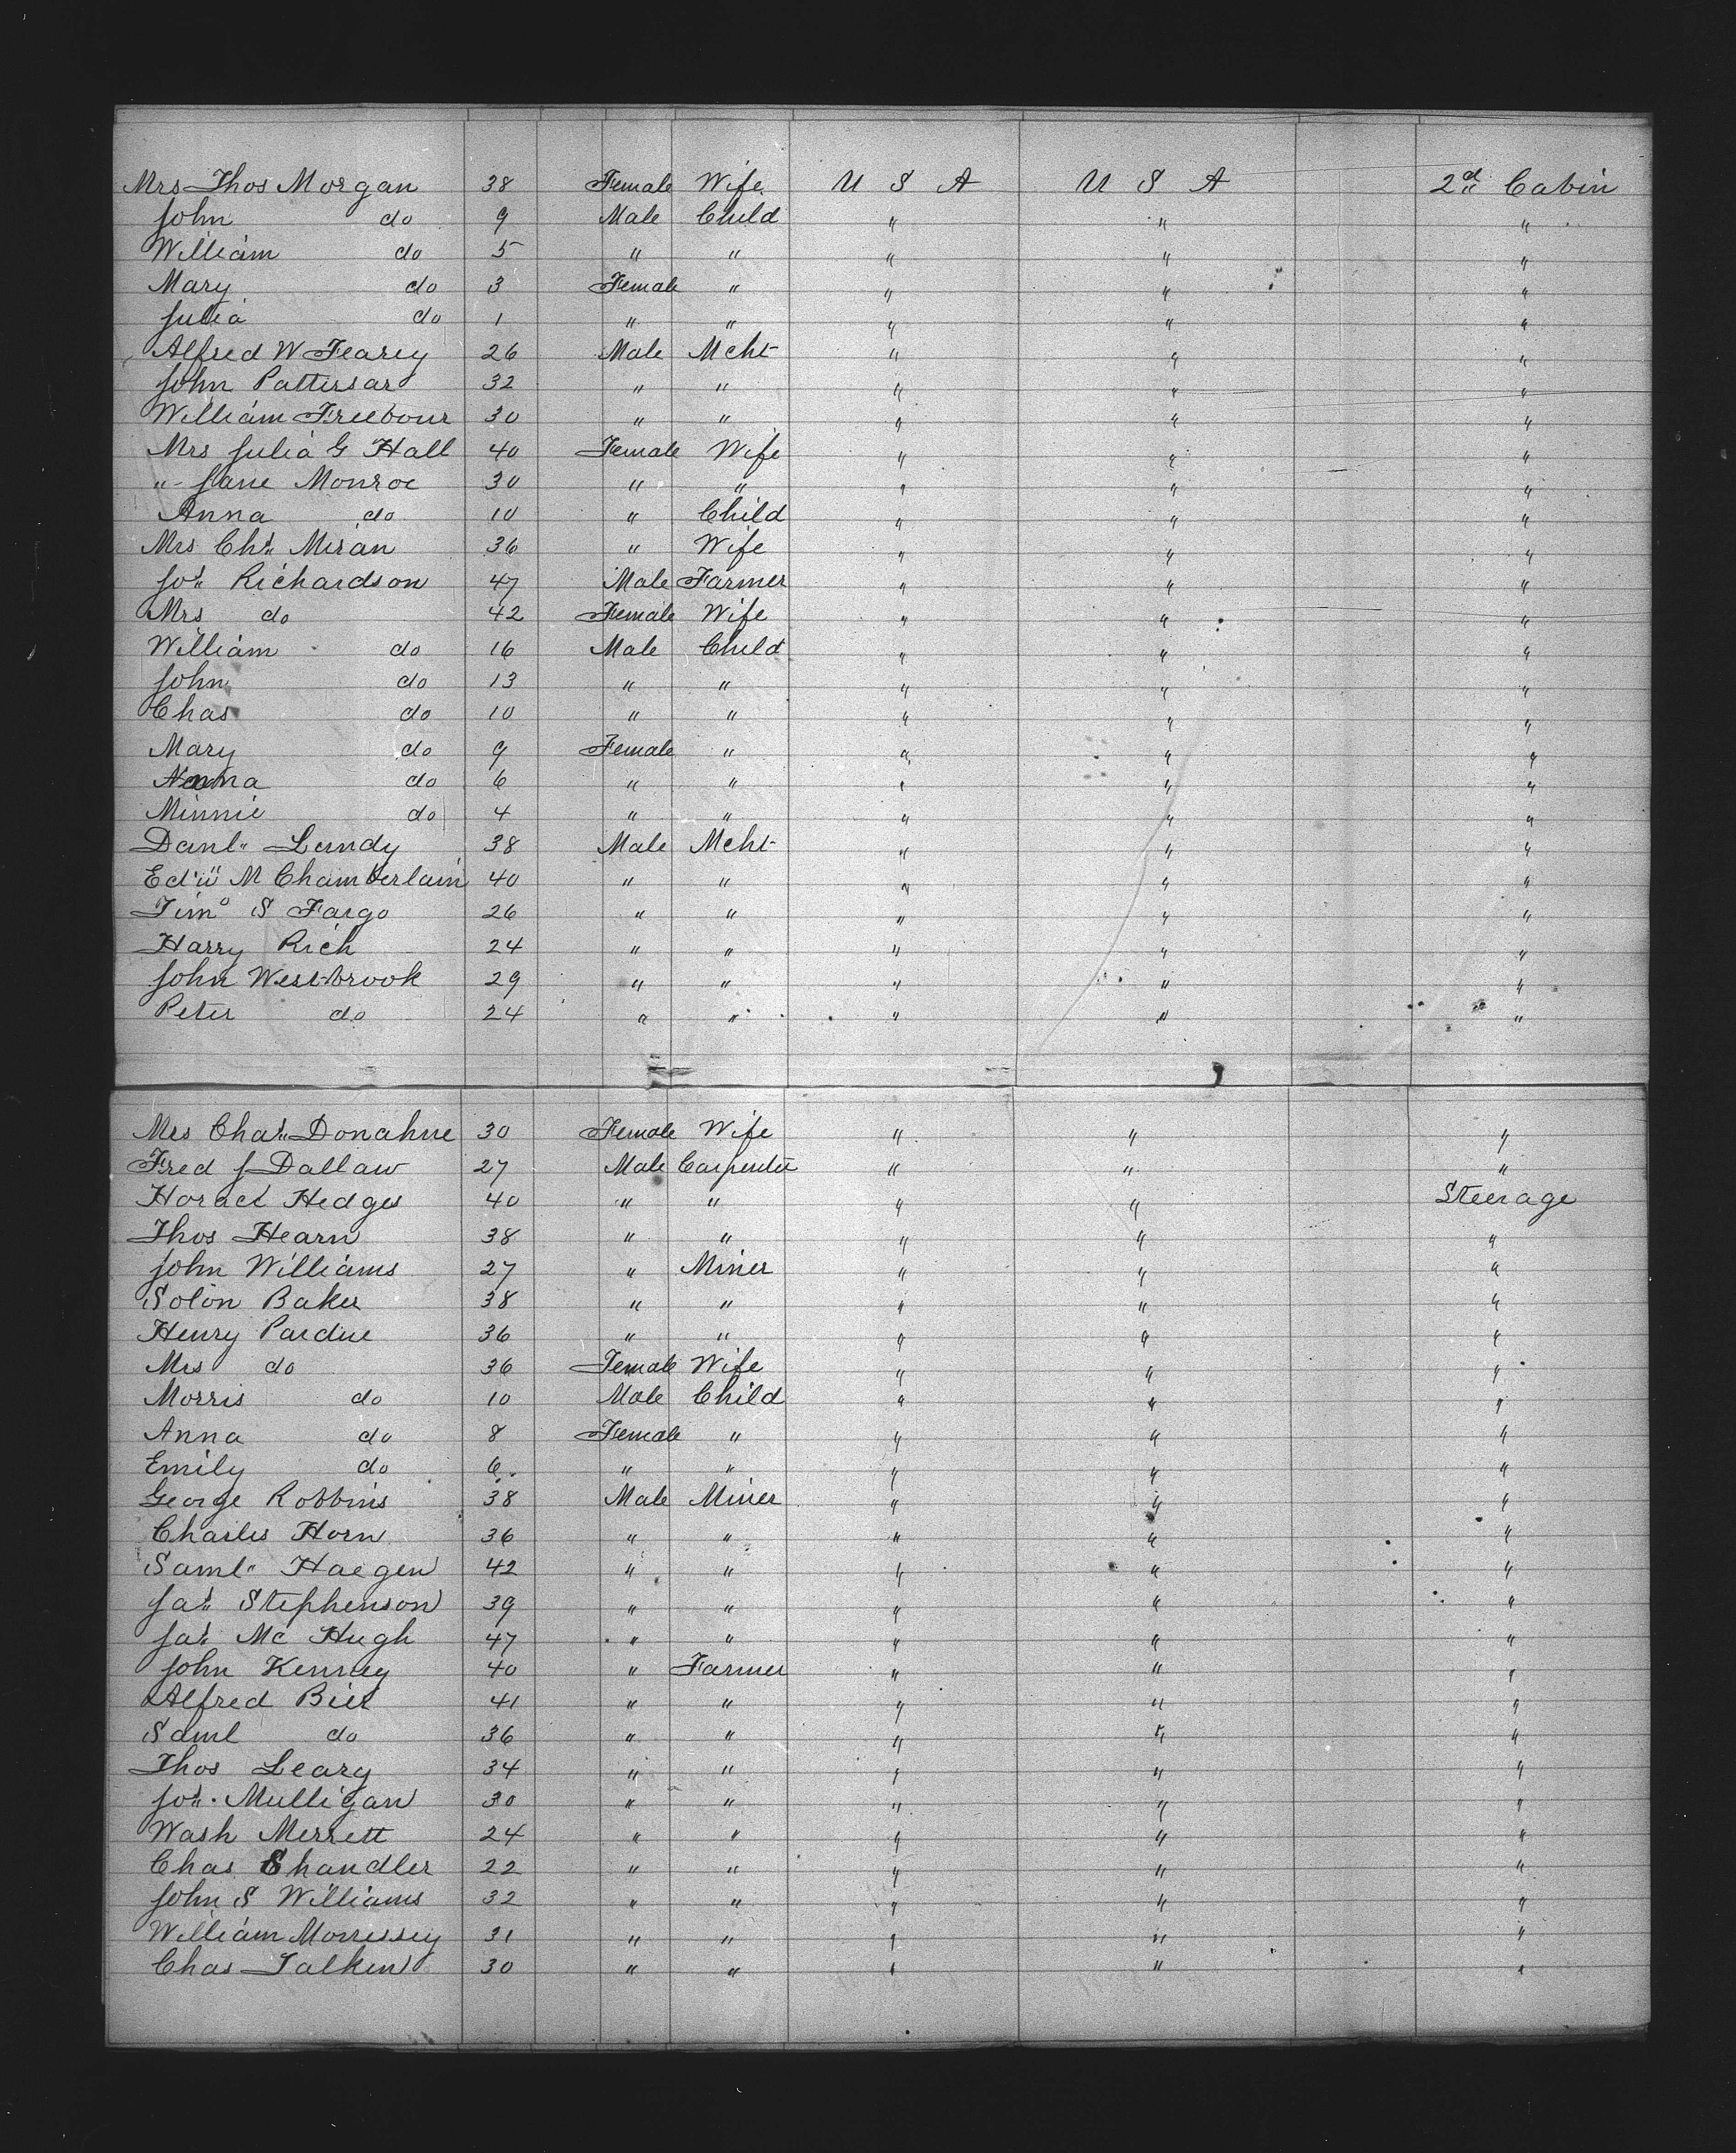 Mrs Thos Morgan 38 Female Wife U S A U S A 2d Cabin
John do 9 Male Child " " "
William do 5 " " " " "
Mary do 3 Female " " " "
Julia do 1 " " " " "
Alfred W Fearey 26 Male Mcht " " "
John Patterson 32 " " " " "
William Freebour 30 " " " " "
Mrs Julia G Hall 40 Female Wife " " "
" Jane Monroe 30 " " " " "
Anna do 10 " Child " " "
Mrs Chs Miran 36 " Wife " " "
Jos Richardson 47 Male Farmer " " "
Mrs do 42 Female Wife " " "
William do 16 Male Child " " "
John do 13 " " " " "
Chas do 10 " " " " "
Mary do 9 Female " " " "
do 6 " " " " "
Minnie do 4 " " " " "
Danl Lundy 38 Male Mcht " " "
Edw M Chamberlain 40 " " " " "
Timo S Fargo 26 " " " " "
Harry Rich 24 " " " " "
John Westbrook 29 " " " " "
Peter do 24 " " " " "
Mrs Chas Donahue 30 Female Wife " " "
Fred J Dallaw 27 Male Carpenter " " "
Horace Hedges 40 " " " " Steerage
Thos Hearn 38 " " " " "
John Williams 27 " Miner " " "
Solon Baker 38 " " " " "
Henry Pardue 36 " " " " "
Mrs do 36 Female Wife " " "
Morris do 10 Male Child " " "
Anna do 8 Female " " " "
Emily do 6 " " " " "
George Robbins 38 Male Miner " " "
Charles Horn 36 " " " " "
Saml Haegen 42 " " " " "
Jas Stephenson 39 " " " " "
Jas Mc Hugh 47 " " " " "
John Kenney 40 " Farmer " " "
Alfred Bier 41 " " " " "
Saml do 36 " " " " "
Thos Leary 34 " " " " "
Jos Mulligan 30 " " " " "
Wash Merrett 24 " " " " "
Chas Chandler 22 " " " " "
John S Williams 32 " " " " "
William Morrissey 31 " " " " "
Chas Talken 30 " " " " "